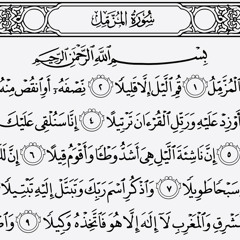 سُورَةُ المُزَّمِّلِ
بِسْمِ اللَّهِ الرَّحْمَٰنِ الرَّحِيمِ
الْمُزَّمِّلُ ١ قُمِ الَّيْلَ إِلَّا قَلِيلًا ٢ نِّصْفَهُ أَوِ انقُصْ مِنْهُ
أَوْ زِدْ عَلَيْهِ وَرَتِّلِ الْقُرْءَانَ تَرْتِيلًا ٤ إِنَّا سَنُلْقِى عَلَيْكَ
٥ إِنَّ نَاشِئَةَ الَّيْلِ هِىَ أَشَدُّ وَطْـًٔا وَأَقْوَمُ قِيلًا ٦ إِنَّ لَكَ
سَبْحًا طَوِيلًا ٧ وَاذْكُرِ اسْمَ رَبِّكَ وَتَبَتَّلْ إِلَيْهِ تَبْتِيلًا
الْمَشْرِقِ وَالْمَغْرِبِ لَآ إِلَٰهَ إِلَّا هُوَ فَاتَّخِذْهُ وَكِيلًا ٩ وَاصْ